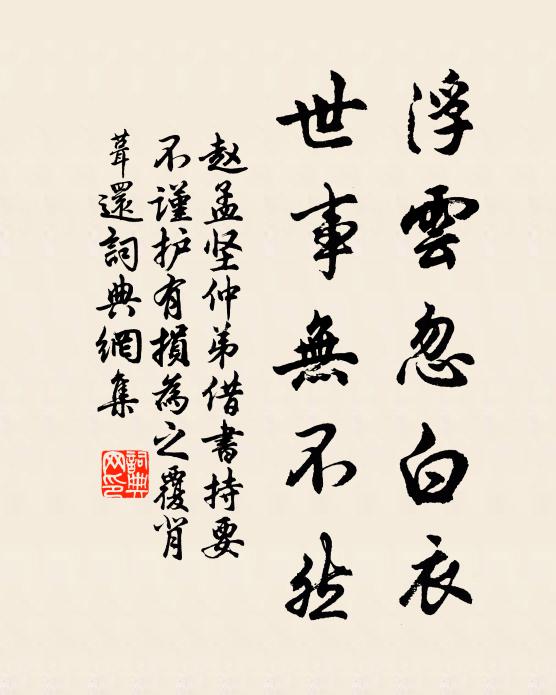 浮雲忽白衣
世事無不然
赵孟坚仲弟借书持要
不謹护有損為之覆肖
葺還詞典網集
詞典
网印